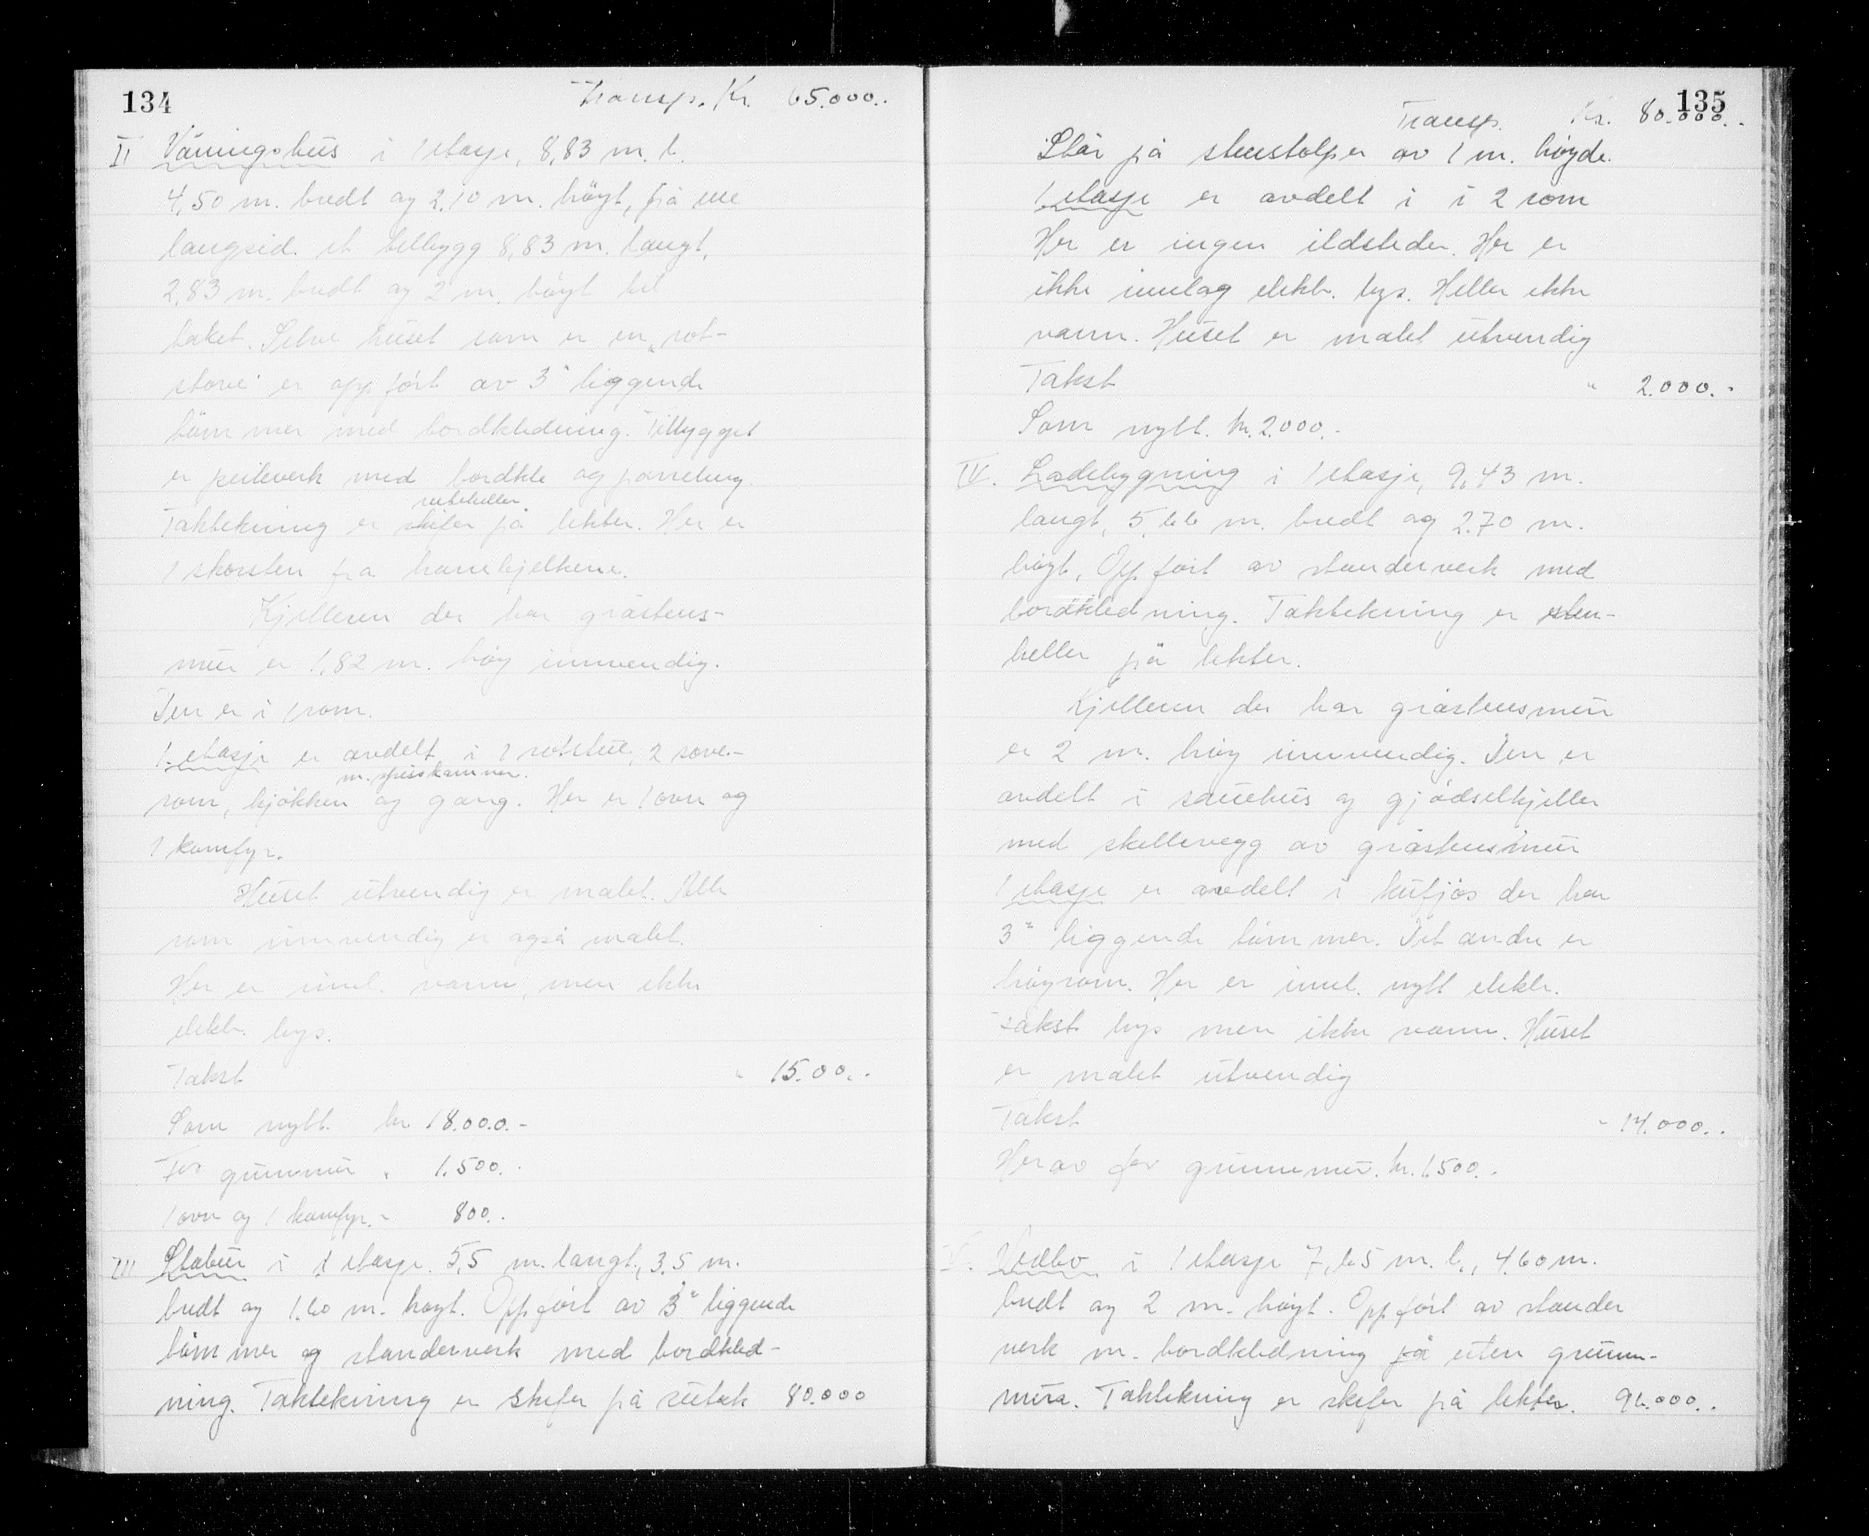 134
Transp. Kr. 65.000..
II Våningshus i 1 etasje, 8,83 m. l.
4,50 m. bredt og 2,10 m. höyt, på ene
langsid. et tilbygg 8,83 m. langt,
2,83 m. bredt og 2 m. höyt til
taket. Selve huset som er en "rot-
stove" er oppfört av 3" liggende
tömmer med bordkledning. Tilbygget
er
med bordkle og panelung.
ruteheller
Taktekning er skifer på lekter. Her er
1 skorsten fra hanebjelkene.
Kjelleren der har gråstens-
mur er 1,82 m. höy innvendig.
Den er i 1 rom.
1. etasje er avdelt i 1 rotstue, 2 sove-
m. spiskammer.
rom, kjökken og gang. Her er 1 ovn og
1 komfyr.
Huset utvendig er malet. Alle
rom innvendig er også malet.
Her er innl. vann, men ikke
elektr. lys.
Takst " 15.00..-
Som nytt kr 18.000.-
For grunnmur " 1.500..
1 ovn og 1 komfyr. - 800..
III Stabur i 1 etasje. 5,5 m. langt, 3,5 m.
bredt og 1.60 m. höyt. Oppfört av 3" liggende
tömmer og standerverk med bordkled-
ning. Taktekning er skifer på sutak 80.000
135
Transp. Kr. 80.000.-
Står på stenstolper av 1 m. höyde.
1 etasje er avdelt i i 2 rom
Her er ingen ildsteder. Her er
ikke innlag elektr. lys. Heller ikke
vann. Huset er malet utvendig
Takst " 2.000.-
Som nytt. kr. 2.000.-
IV. Ladebygning i 1 etasje, 9,43 m.
langt, 5,66 m. bredt og 2.70 m.
höyt, Oppfört av standerverk med
bordkledning. Taktekning er sten-
heller på lekter.
Kjelleren der har gråstensmur
er 2 m. höy innvendig. Den er
avdelt i sauehus og gjödselkjeller
med skillevegg av gråstensmur
1 etasje er avdelt i kufjös der har
3" liggende tömmer. Det andre er
höyrom. Her er innl. nytt elektr.
lys men ikke vann. Huset
er malet utvendig
Takst - 14.000..
Herav for grunnmur. kr. 1.500.-
V. Vedbo i 1 etasje 7,65 m. l., 4.60 m.
bredt og 2 m. höyt. Oppfört av stander
verk m. bordkledning på uten grunn-
mura. Taktekning er skifer på lekter. 96.000..